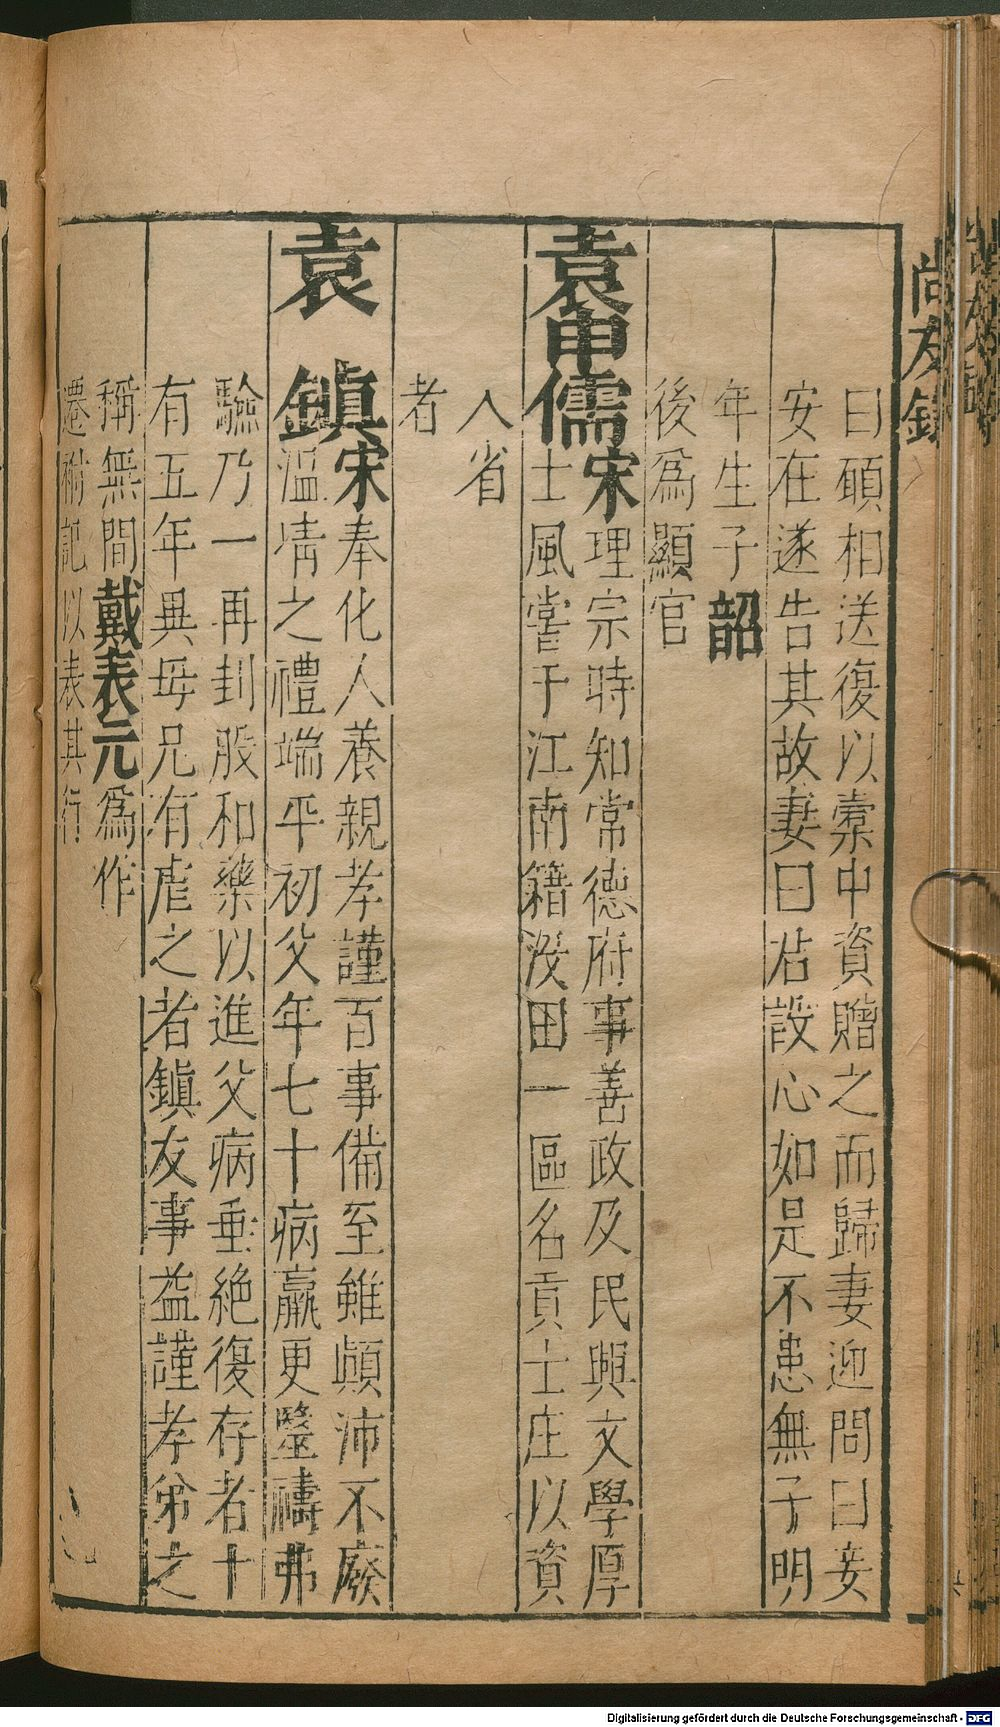 尚友錄
曰願相送復以橐中資贈之而歸妻迎問曰妾
安在遂告其故妻曰君設心如是不患無子明
年生子韶
後爲顯官
袁申儒宋理宗時知常德府事善政及民興文學厚
士風嘗于江南籍沒田一區名貢士庄以資
入省
者
袁鎮宋奉化人養親孝謹百事備至雖顛沛不廢
溫凊之禮端平初父年七十病羸更醫禱弗
驗乃一再刲股和藥以進父病垂絕復存者十
有五年異母兄有虐之者鎮友事益謹孝弟之
稱無間戴表元爲作
遷祔記以表其行
Digitalisierung gefördert durch die Deutsche Forschungsgemeinschaft - DFG